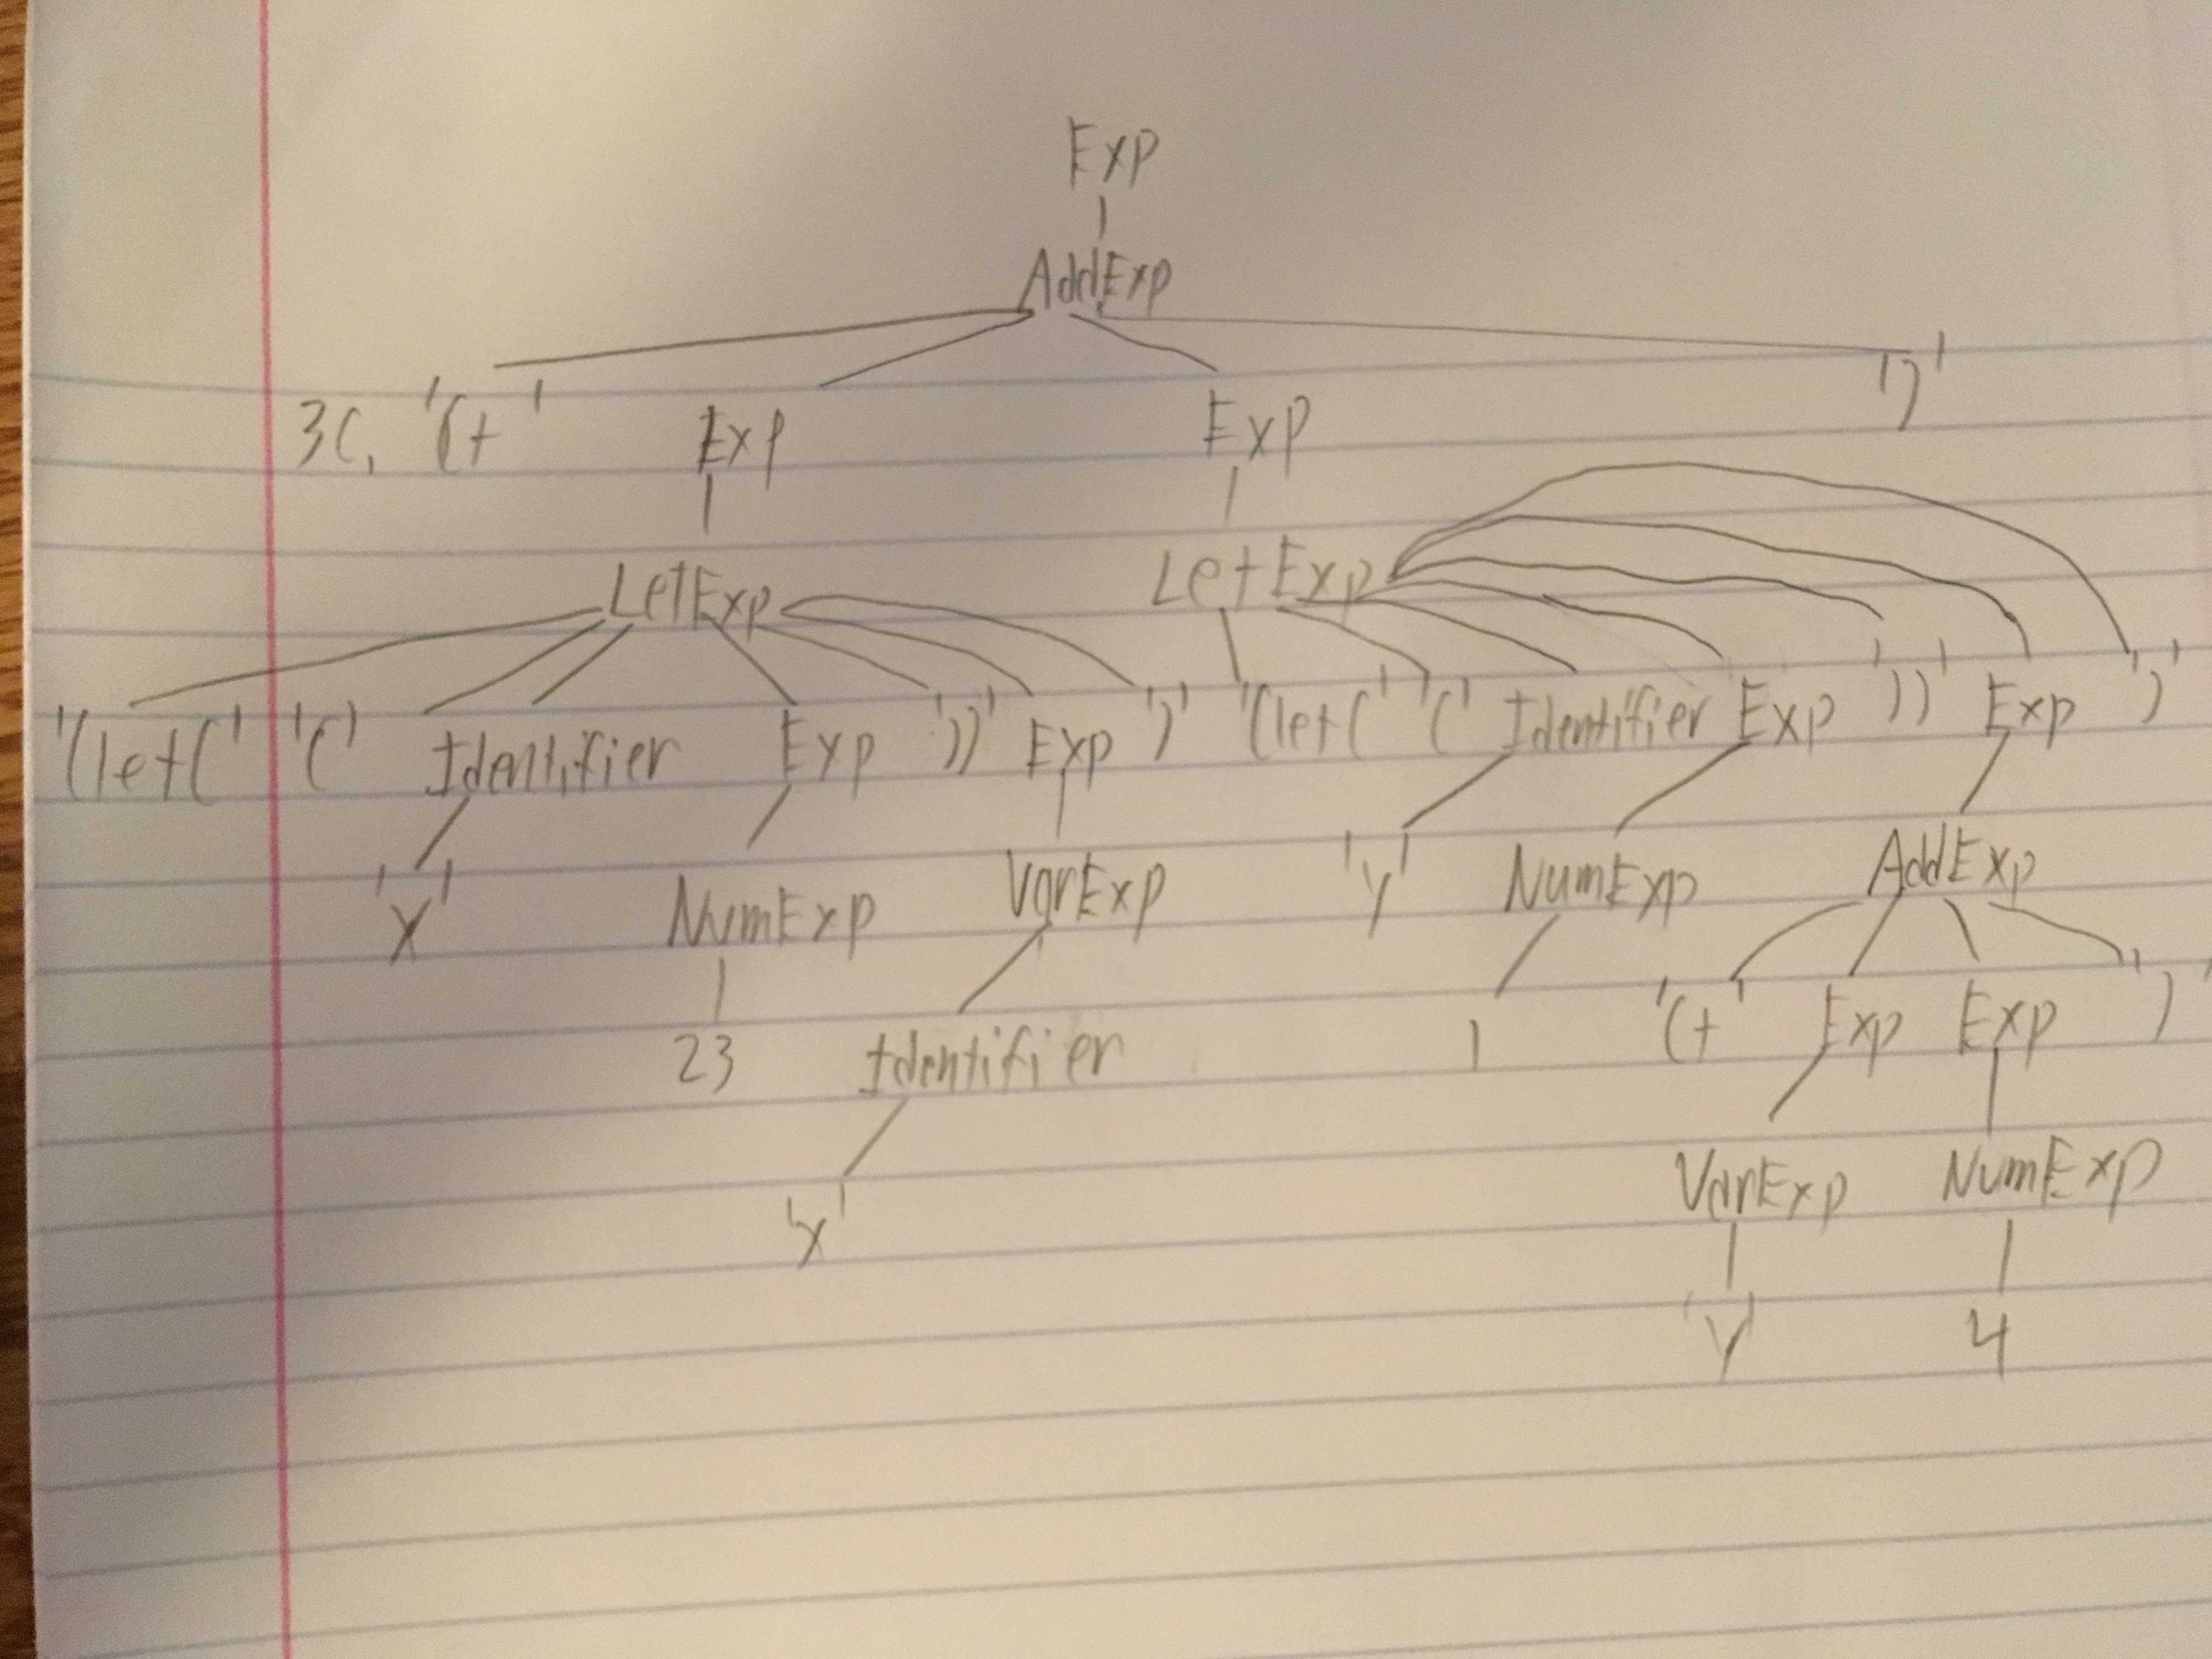 Exp
AddExp
3C, '(+' Exp Exp ')'
LetExp LetExp
'(let(' '(' Identifier Exp '))' Exp ')' '(let(' '(' Identifier Exp '))' Exp ')'
'x' NumExp VarExp 'y' NumExp AddExp
23 Identifier 1 '(+' Exp Exp ')'
'x' VarExp NumExp
'y' 4